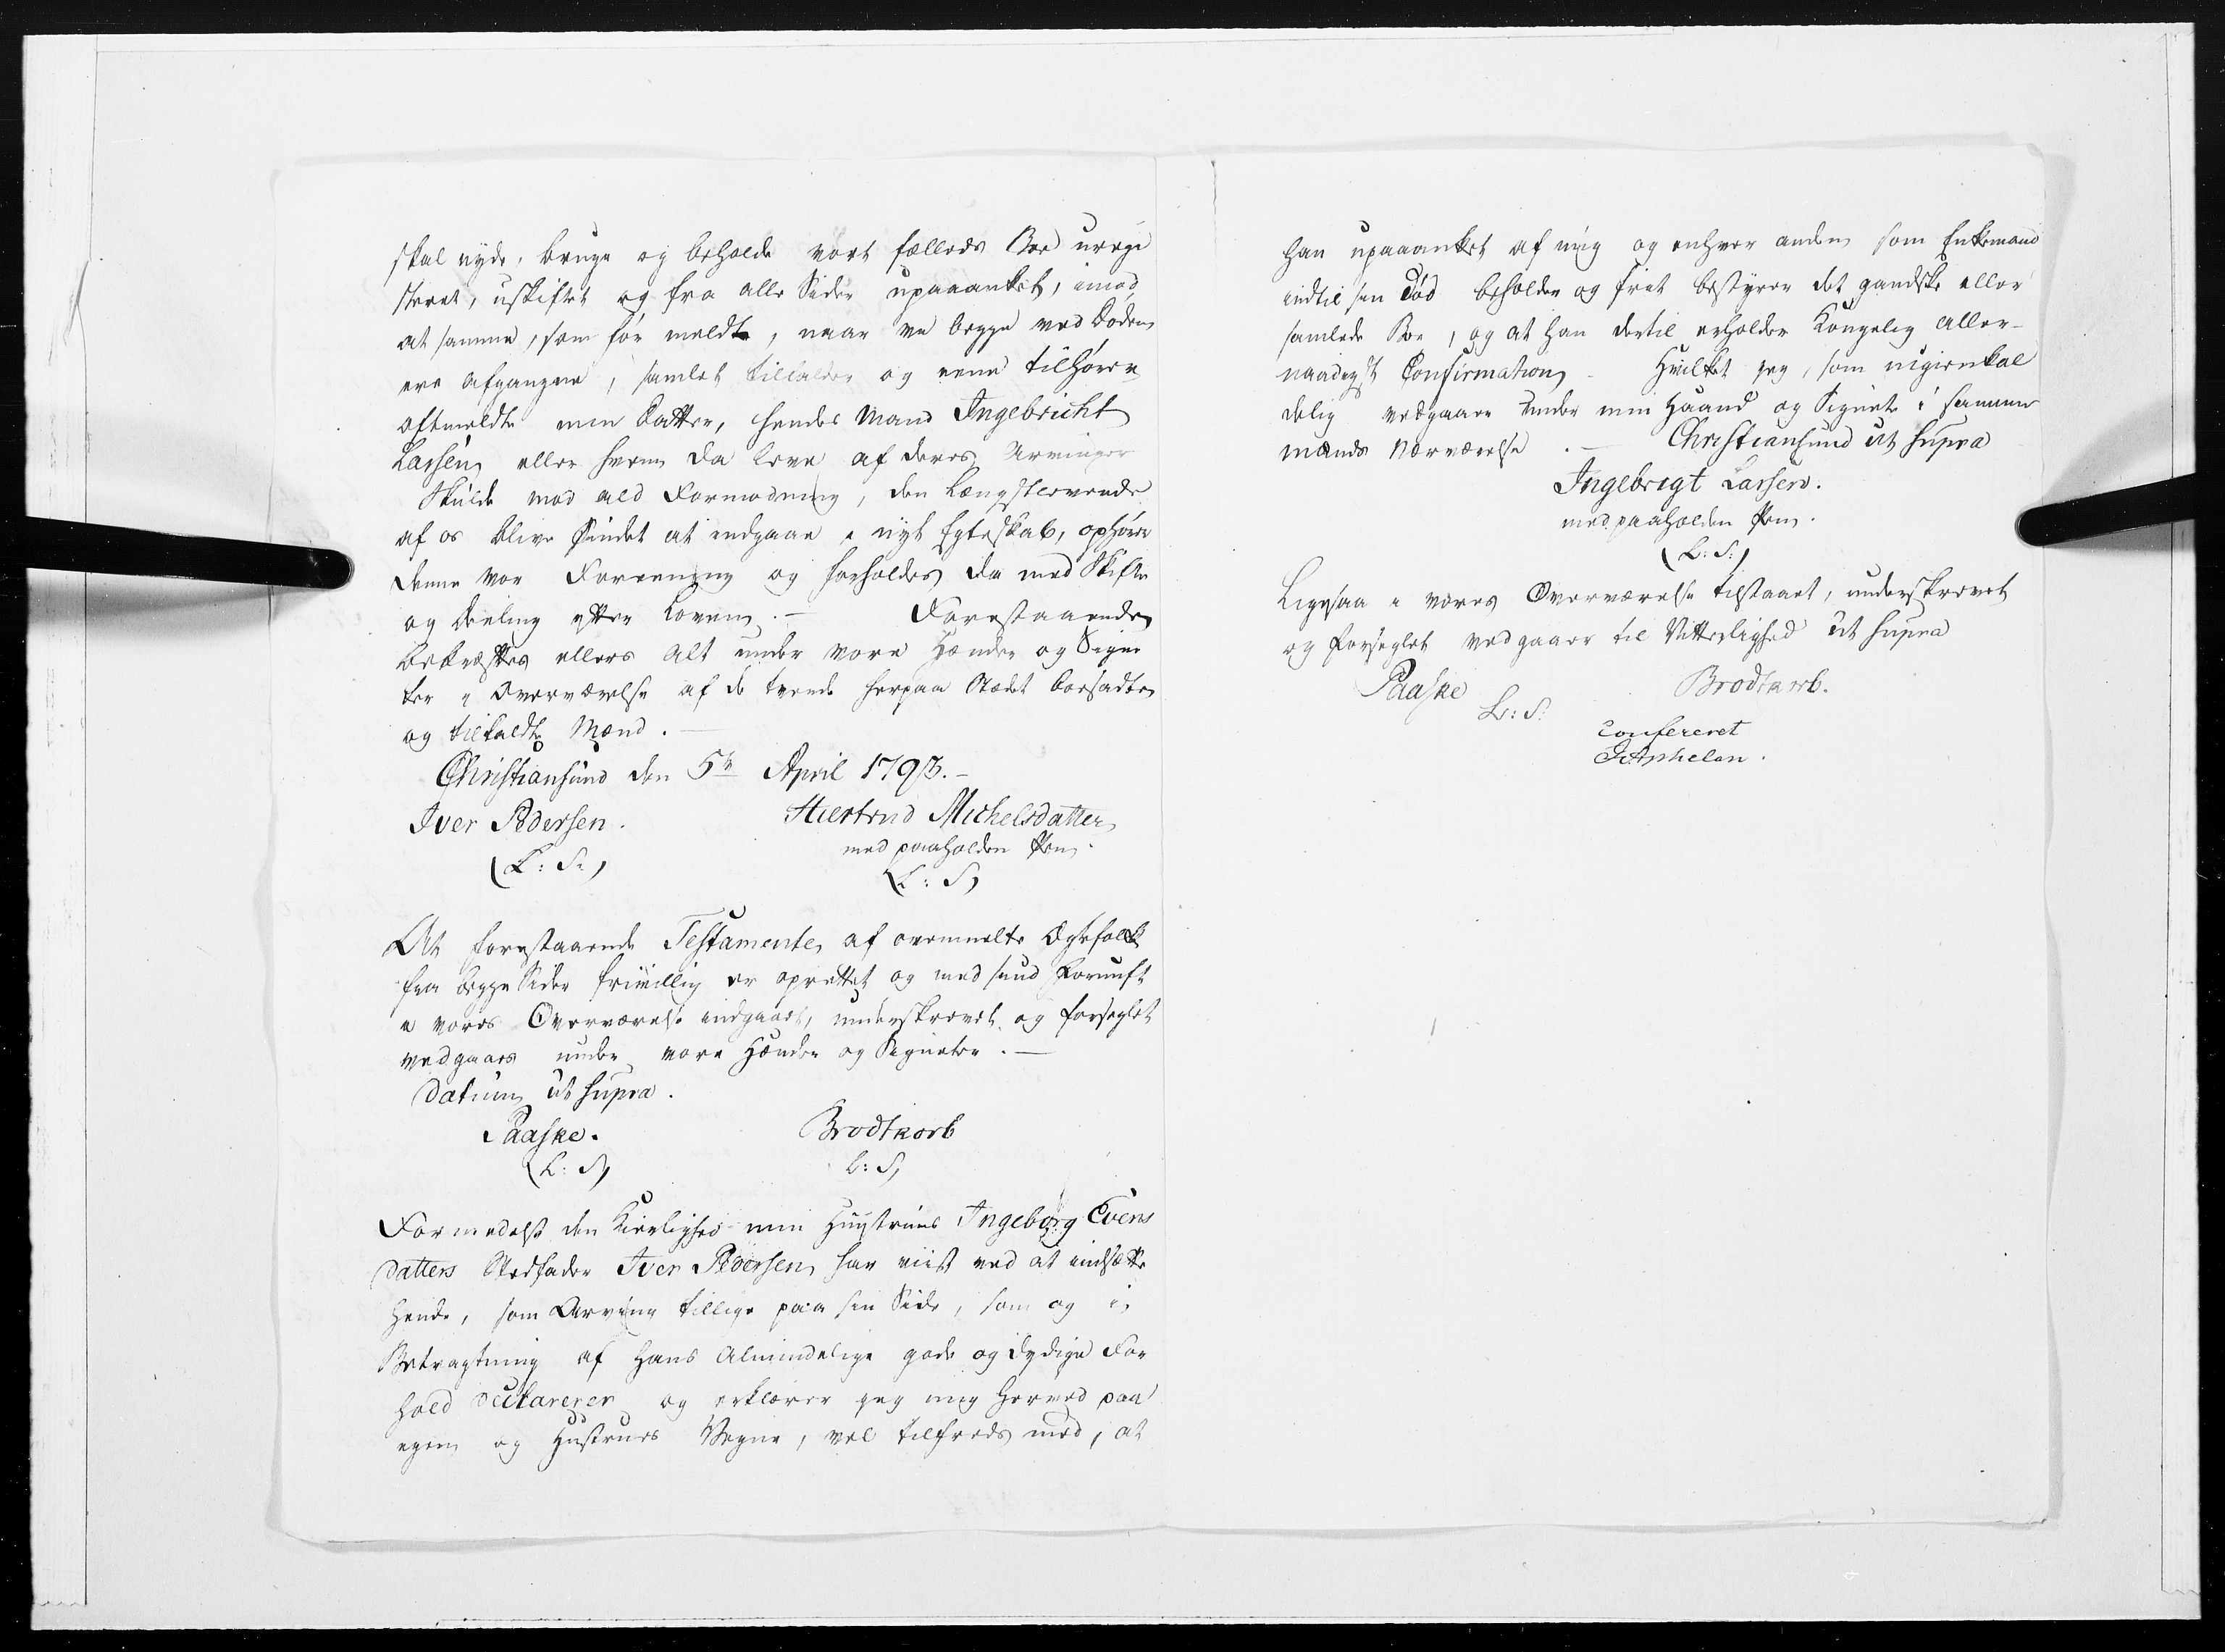 skal nyde, bruge og beholde vort fælleds Boe uregi
streret, uskiftet og fra alle Sider upaaanket, imod
at samme, som før meldt, naar vi begge ved Døden
ere afgangne, samlet tilfalder og eene tilhører
oftmeldte min Datter, hendes Mand Ingebricht
Larsen eller hvem da leve af deres Arvinger
Skulde mod ald Formodning, den Længstlevende
af os blive sindet at indgaae i nyt Egteskab, ophører
denne vor Foreening og forholdes da med Skifte
og Deeling efter Loven. – Forestaaende
bekræftes ellers alt under vore Hænder og Signe
ter i Overværelse af de tvende herpaa Stædet boesadte
og tilkaldte Mænd. –
Christiansund den 5te April 1793. –
Iver Pedersen. Hiertrud Michelsdatter
med paaholden Pen.
(L: S:) (L: S)
At forestaaende Testamente af ovenmeldte Ægtefolk
fra begge Sider frivillig er oprettet og med sund Fornuft
i vores Overværelse indgaaet, underskrevet og forseglet
vedgaaes under vore Hænder og Signeter. –
Datum ut supra.
Paaske. Brodtkorb
(L: S) L: S)
Formedelst den Kierlighed min Huustrues Ingeborg Evens
datters Stedfader Iver Pedersen har viist ved at indsætte
hende, som Arving tillige paa sin Side, som og i
Betragtning af hans Almindelige gode og dydige For
hold declarerer og erklærer jeg mig herved paa
egen og Hustrues Vegne, vel tilfreds med, at
han upaaanket af mig og enhver anden som Enkemand
indtil sin Død beholder og friet bestyrer det gandske eller
samlede Boe, og at han dertil erholder Kongelig Aller-
naadigst Confirmation – Hvilket jeg, som uigienkal
delig vedgaaer under min Haand og Signete i samme
Mænds Nærværelse. – Christiansund ut supra
Ingebrigt Larsen.
med paaholden Pen.
(L: S:)
Ligesaa i vores Overværelse tilstaaet, underskrevet
og forseglet vedgaaer til Vitterlighed ut supra
Paaske Brodtkorb.
L: S.
Confereret